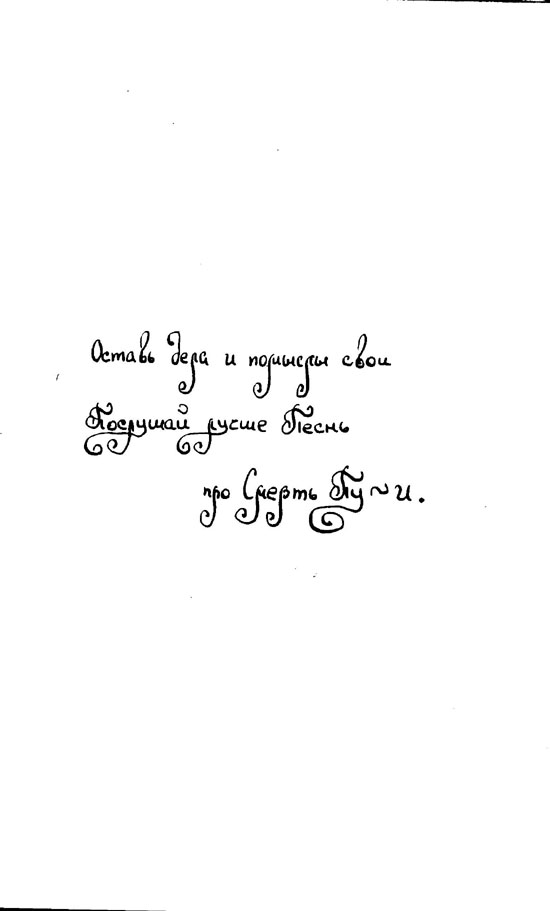 Оставь дела и помыслы свои
Послушай лучше Песнь
про Смерть Пу~и.